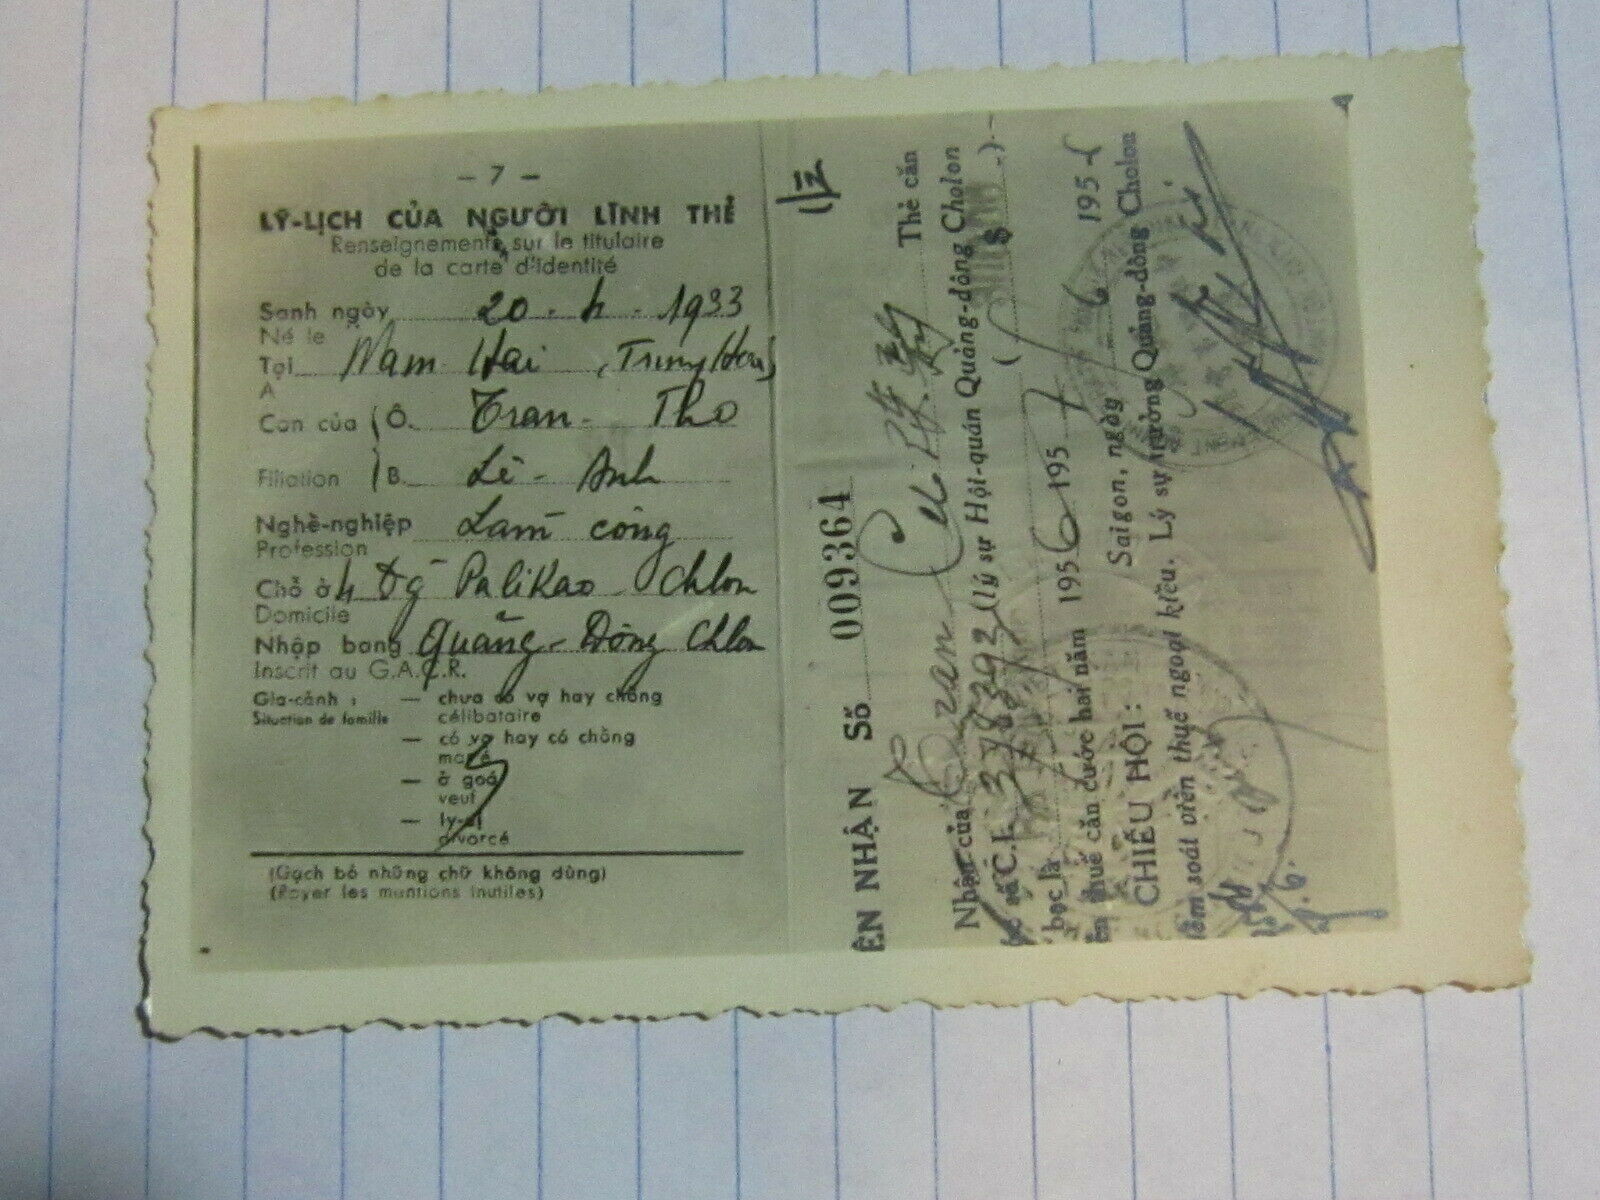 — 7 —
LÝ-LỊCH CỦA NGƯỜI LĨNH THẺ
Renseignements sur le titulaire
de la carte d'identité
Sanh ngày 20 - 4 - 1933
Né le
Tại Nam Hai, (Trung Hoa)
A
Con của Ô. Tran - Tho
Filiation B. Lê - Anh
Nghề-nghiệp Làm công
Profession
Chỗ ở 4 Đg Palikao Chlon
Domicile
Nhập bang Quảng - Đông Chlon
Inscrit au G.A.C.R.
Gia-cảnh : — chưa có vợ hay chồng
Situation de famille célibataire
— có vợ hay có chồng
marié
— ở goá
veuf
— ly-dị
divorcé
(Gạch bỏ những chữ không dùng)
(Rayer les mentions inutiles)
ÊN NHẬN Số 009364
Nhận của Tran Cu Thẻ căn
C.I. 378392 (lý sự Hội-quán Quảng-đông Cholon
bạc là ( $ )
thuế căn cước hai năm 1956 195
Saigon, ngày 7/6 195
CHIẾU HỘI :
iểm soát viên thuế ngoại kiều. Lý sự trưởng Quảng-đông Cholon